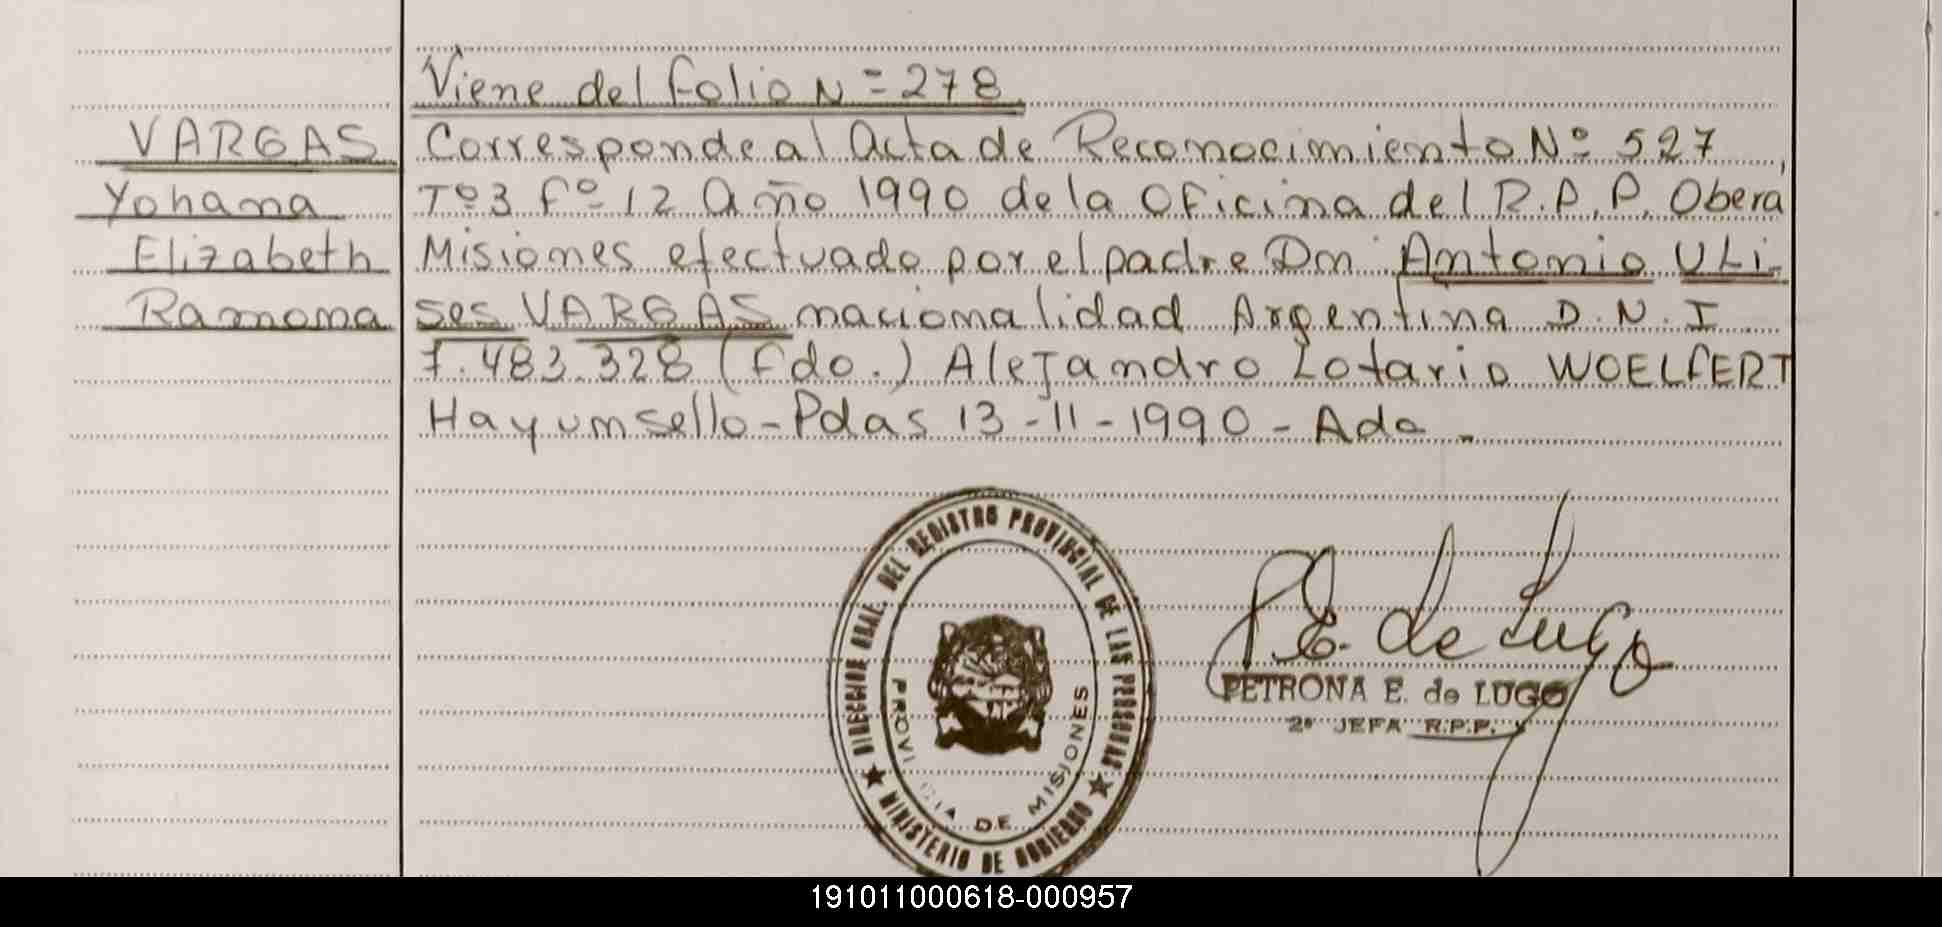 Viene del folio N = 278
VARGAS
Yohana
Elizabeth
Ramona
Corresponde al acta de Reconocimiento Nº 527,
Tº 3 fº 12 año 1990 de la Oficina del R.P.P. Obera
Misiones efectuado por el padre Dn Antonio Uli-
ses VARGAS nacionalidad Argentina D.N.I
7.483.328 (fdo.) Alejandro Lotario WOELFERT
Hay um sello - Pdas 13-11-1990 - Ada.
DIRECCION GRAL. DEL REGISTRO PROVINCIAL DE LAS PERSONAS
PROVI CIA DE MISIONES
MINISTERIO DE GOBIERNO
P.E. de Lugo
PETRONA E. de LUGO
2º JEFA R.P.P.
191011000618-000957